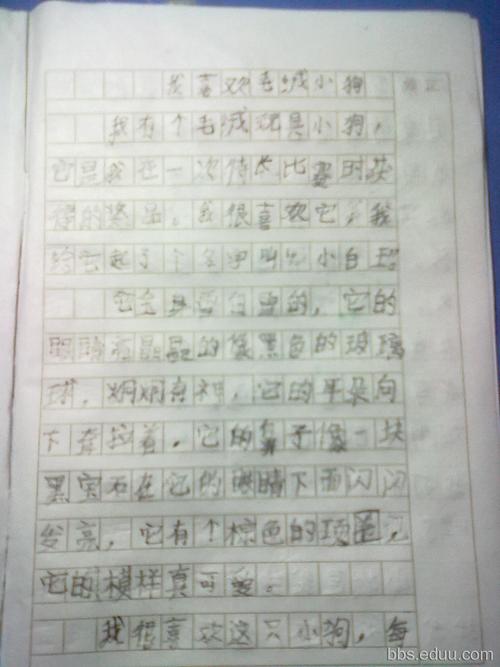 我喜欢毛绒小狗
订正
我有个毛绒玩具小狗，
它是我在一次特长比赛时获
得的奖品。我很喜欢它，我
给它起了个名字叫小白球
它全身雪白雪白的，它的
眼睛亮晶晶的像黑色的玻璃
球，炯炯有神，它的耳朵向
下耷拉着，它的鼻子像一块
黑宝石在它的眼睛下面闪闪
发亮，它有个棕色的项圈，
它的模样真可爱。
我很喜欢这只小狗，每
bbs.eduu.com